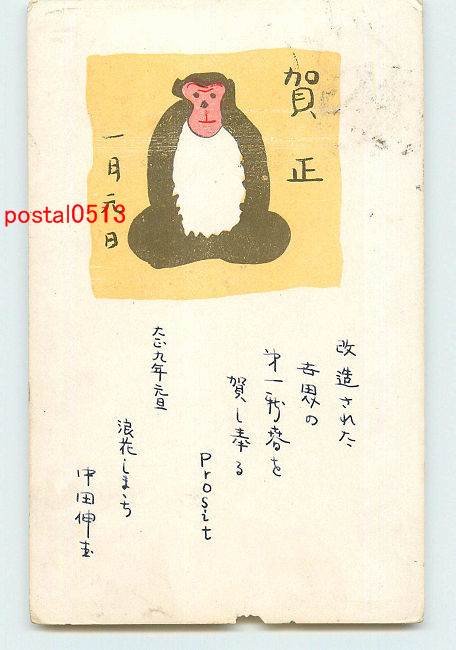 賀正
一月元日
postal0513
改造された
世界の
第一新春を
賀し奉る
Prosit
大正九年元旦
浪花しまち
中田伸